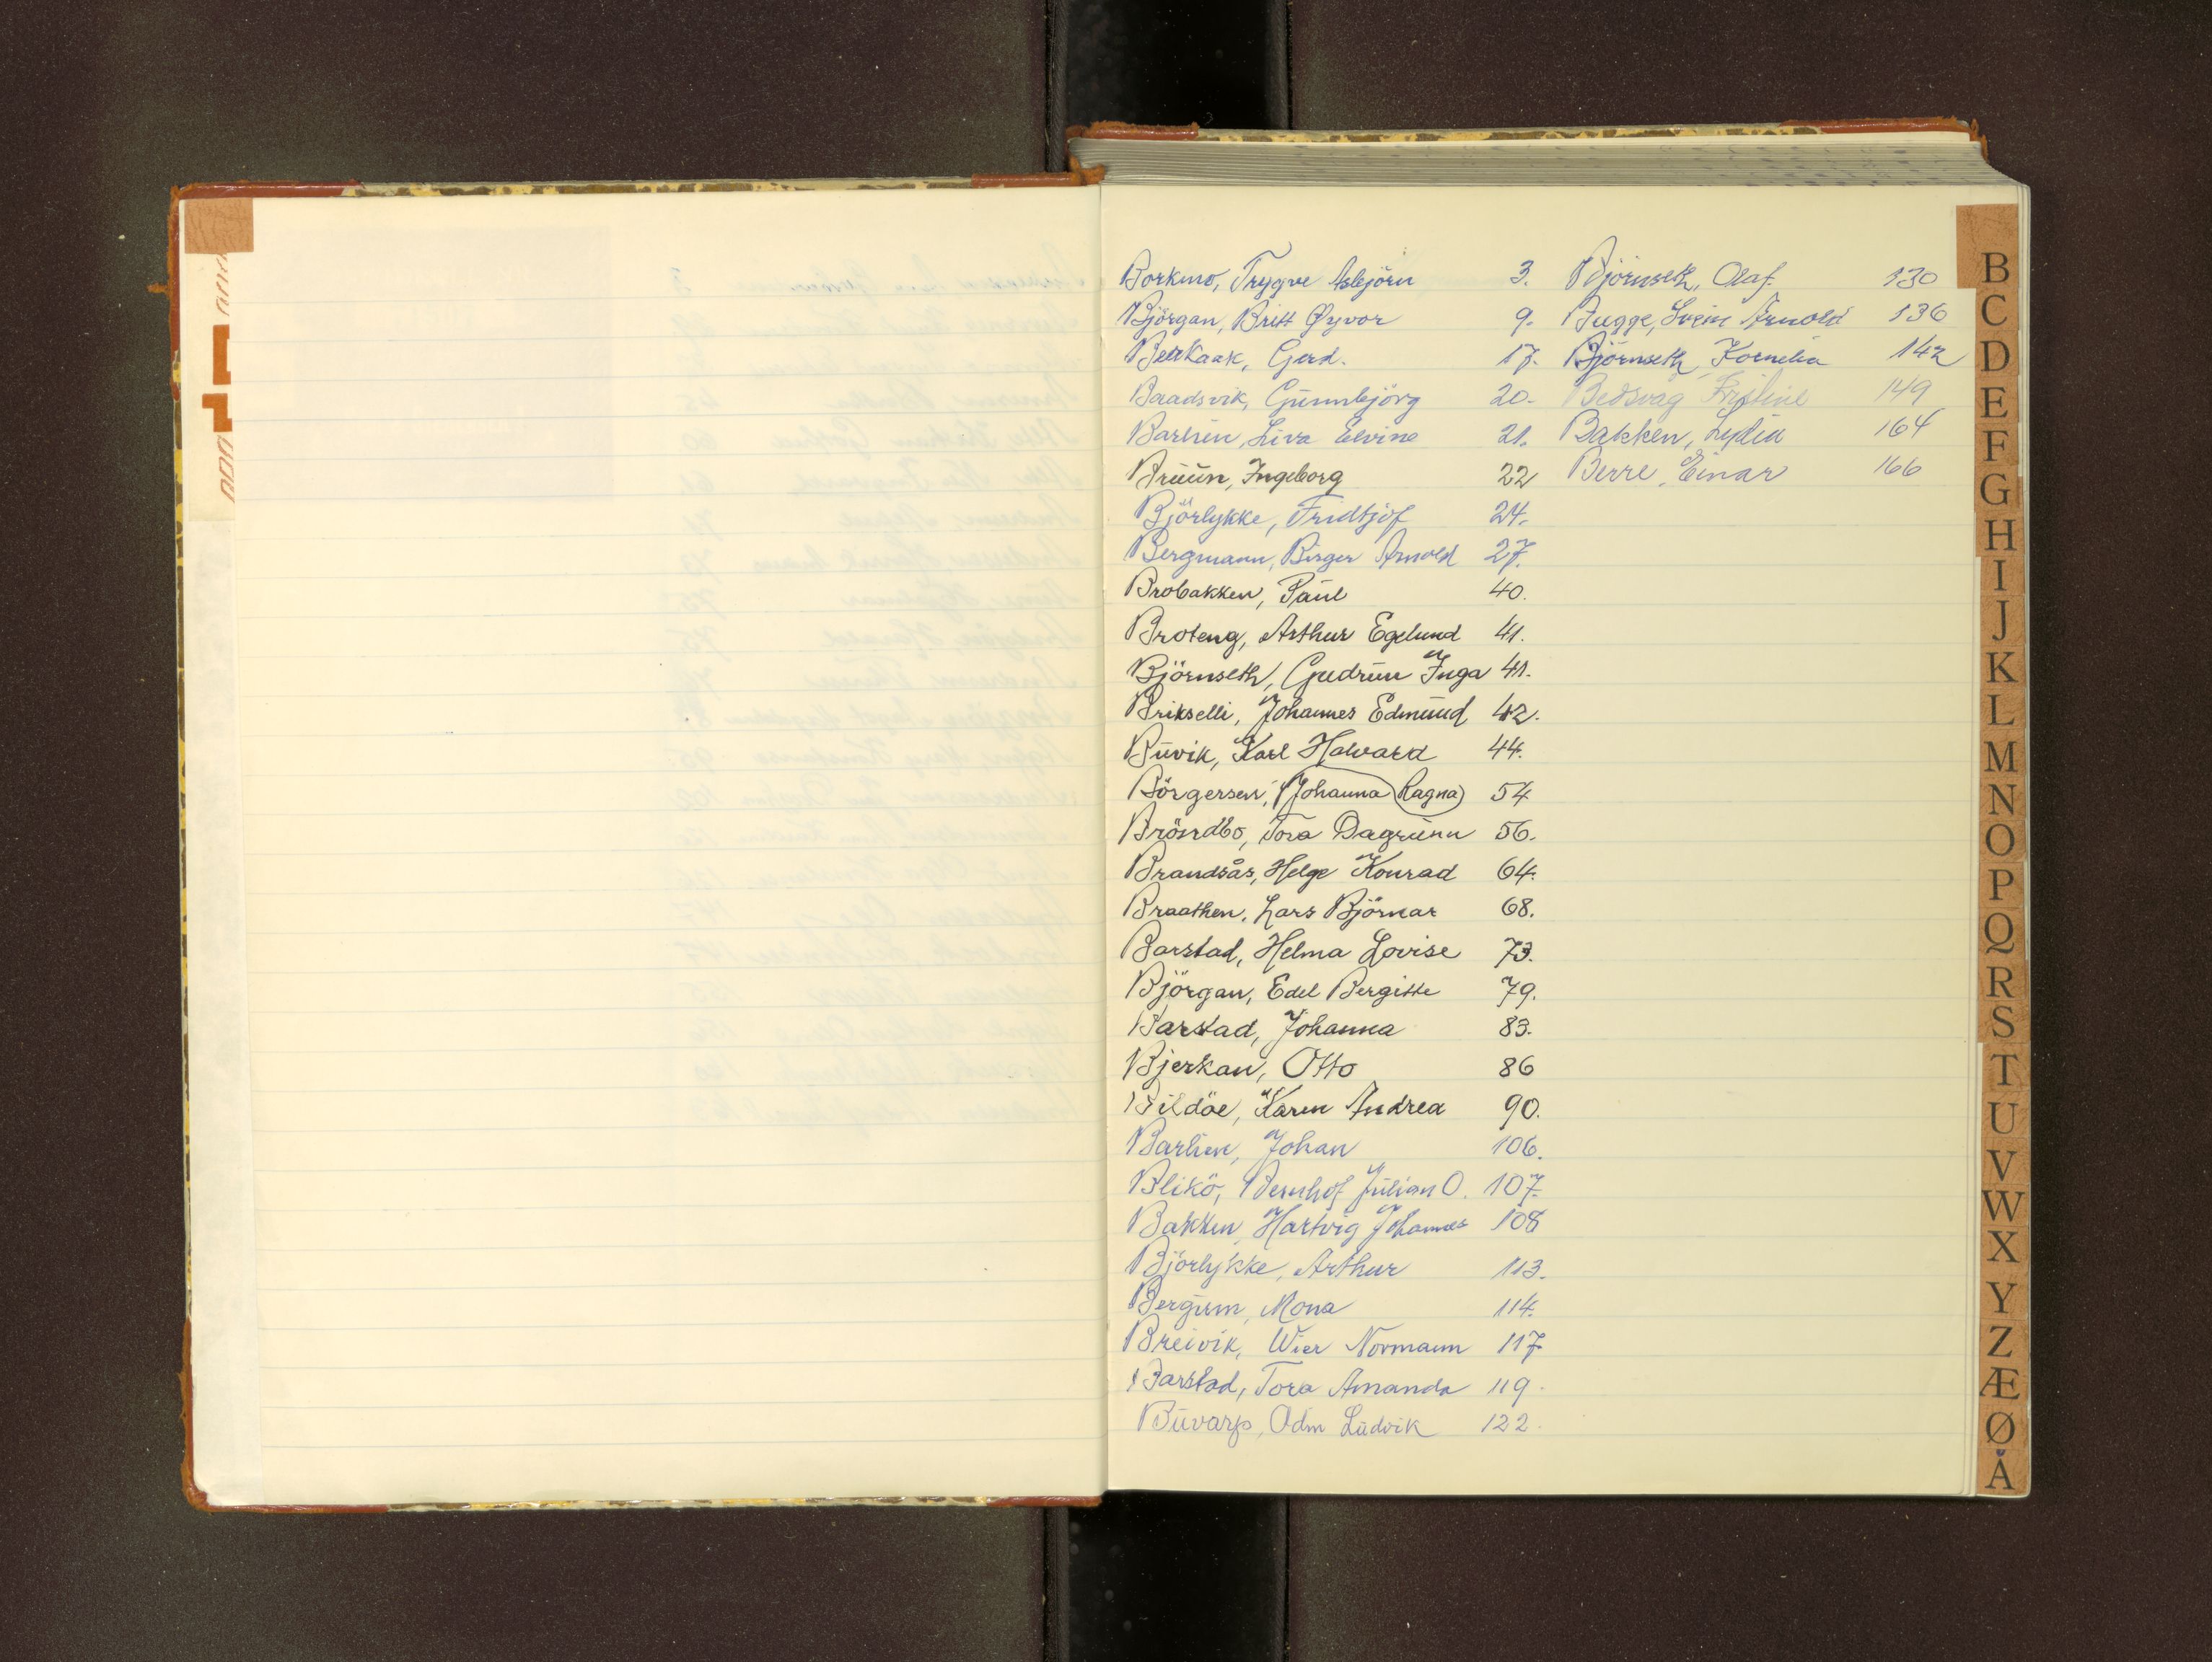 Borkmo, Trygve Asbjörn 3.
Björgan, Britt Øyvor 9.
Gerd. 17.
Baadsvik, Gunnbjörg 20.
Barlien, Liva Elvine 21.
Bruun, Ingeborg 22
Björlykke, Fridtjof 24.
Bergmann, Birger Arnold 27.
Brobakken, Paul 40.
Broteng, Arthur Egelund 41.
Björnseth, Gudrun Inga 41.
Brikselli, Johannes Edmund 42.
Buvik, Karl Halvard 44.
Börgersen, (Johanna Ragna) 54
Tora Dagrunn 56.
Brandsås, Helge Konrad 64.
Braathen, Lars Björnar 68.
Barstad, Helma Lovise 73.
Björgan, Edel Bergitte 79.
Barstad, Johanna 83.
Bjerkan, Otto 86
Bildöe, Karen Andrea 90.
Barlien, Johan 106.
Blikö, Bernhof Julian O. 107.
Bakken, Hartvig Johannes 108
Björlykke, Arthur 113.
Bergum, Mona 114.
Breivik, Wier Normann 117
Barstad, Tora Amanda 119.
Buvarp, Odm Ludvik 122.
Björnseth, Olaf. 130
Bugge, Svein Arnold 136
Björnseth Kornelia 142
Bedsvåg 149
Bakken, Lydia 164
Berre, Einar 166
B
C
D
E
F
G
H
I
J
K
L
M
N
O
P
Q
R
S
T
U
V
W
X
Y
Z
Æ
Ø
Å